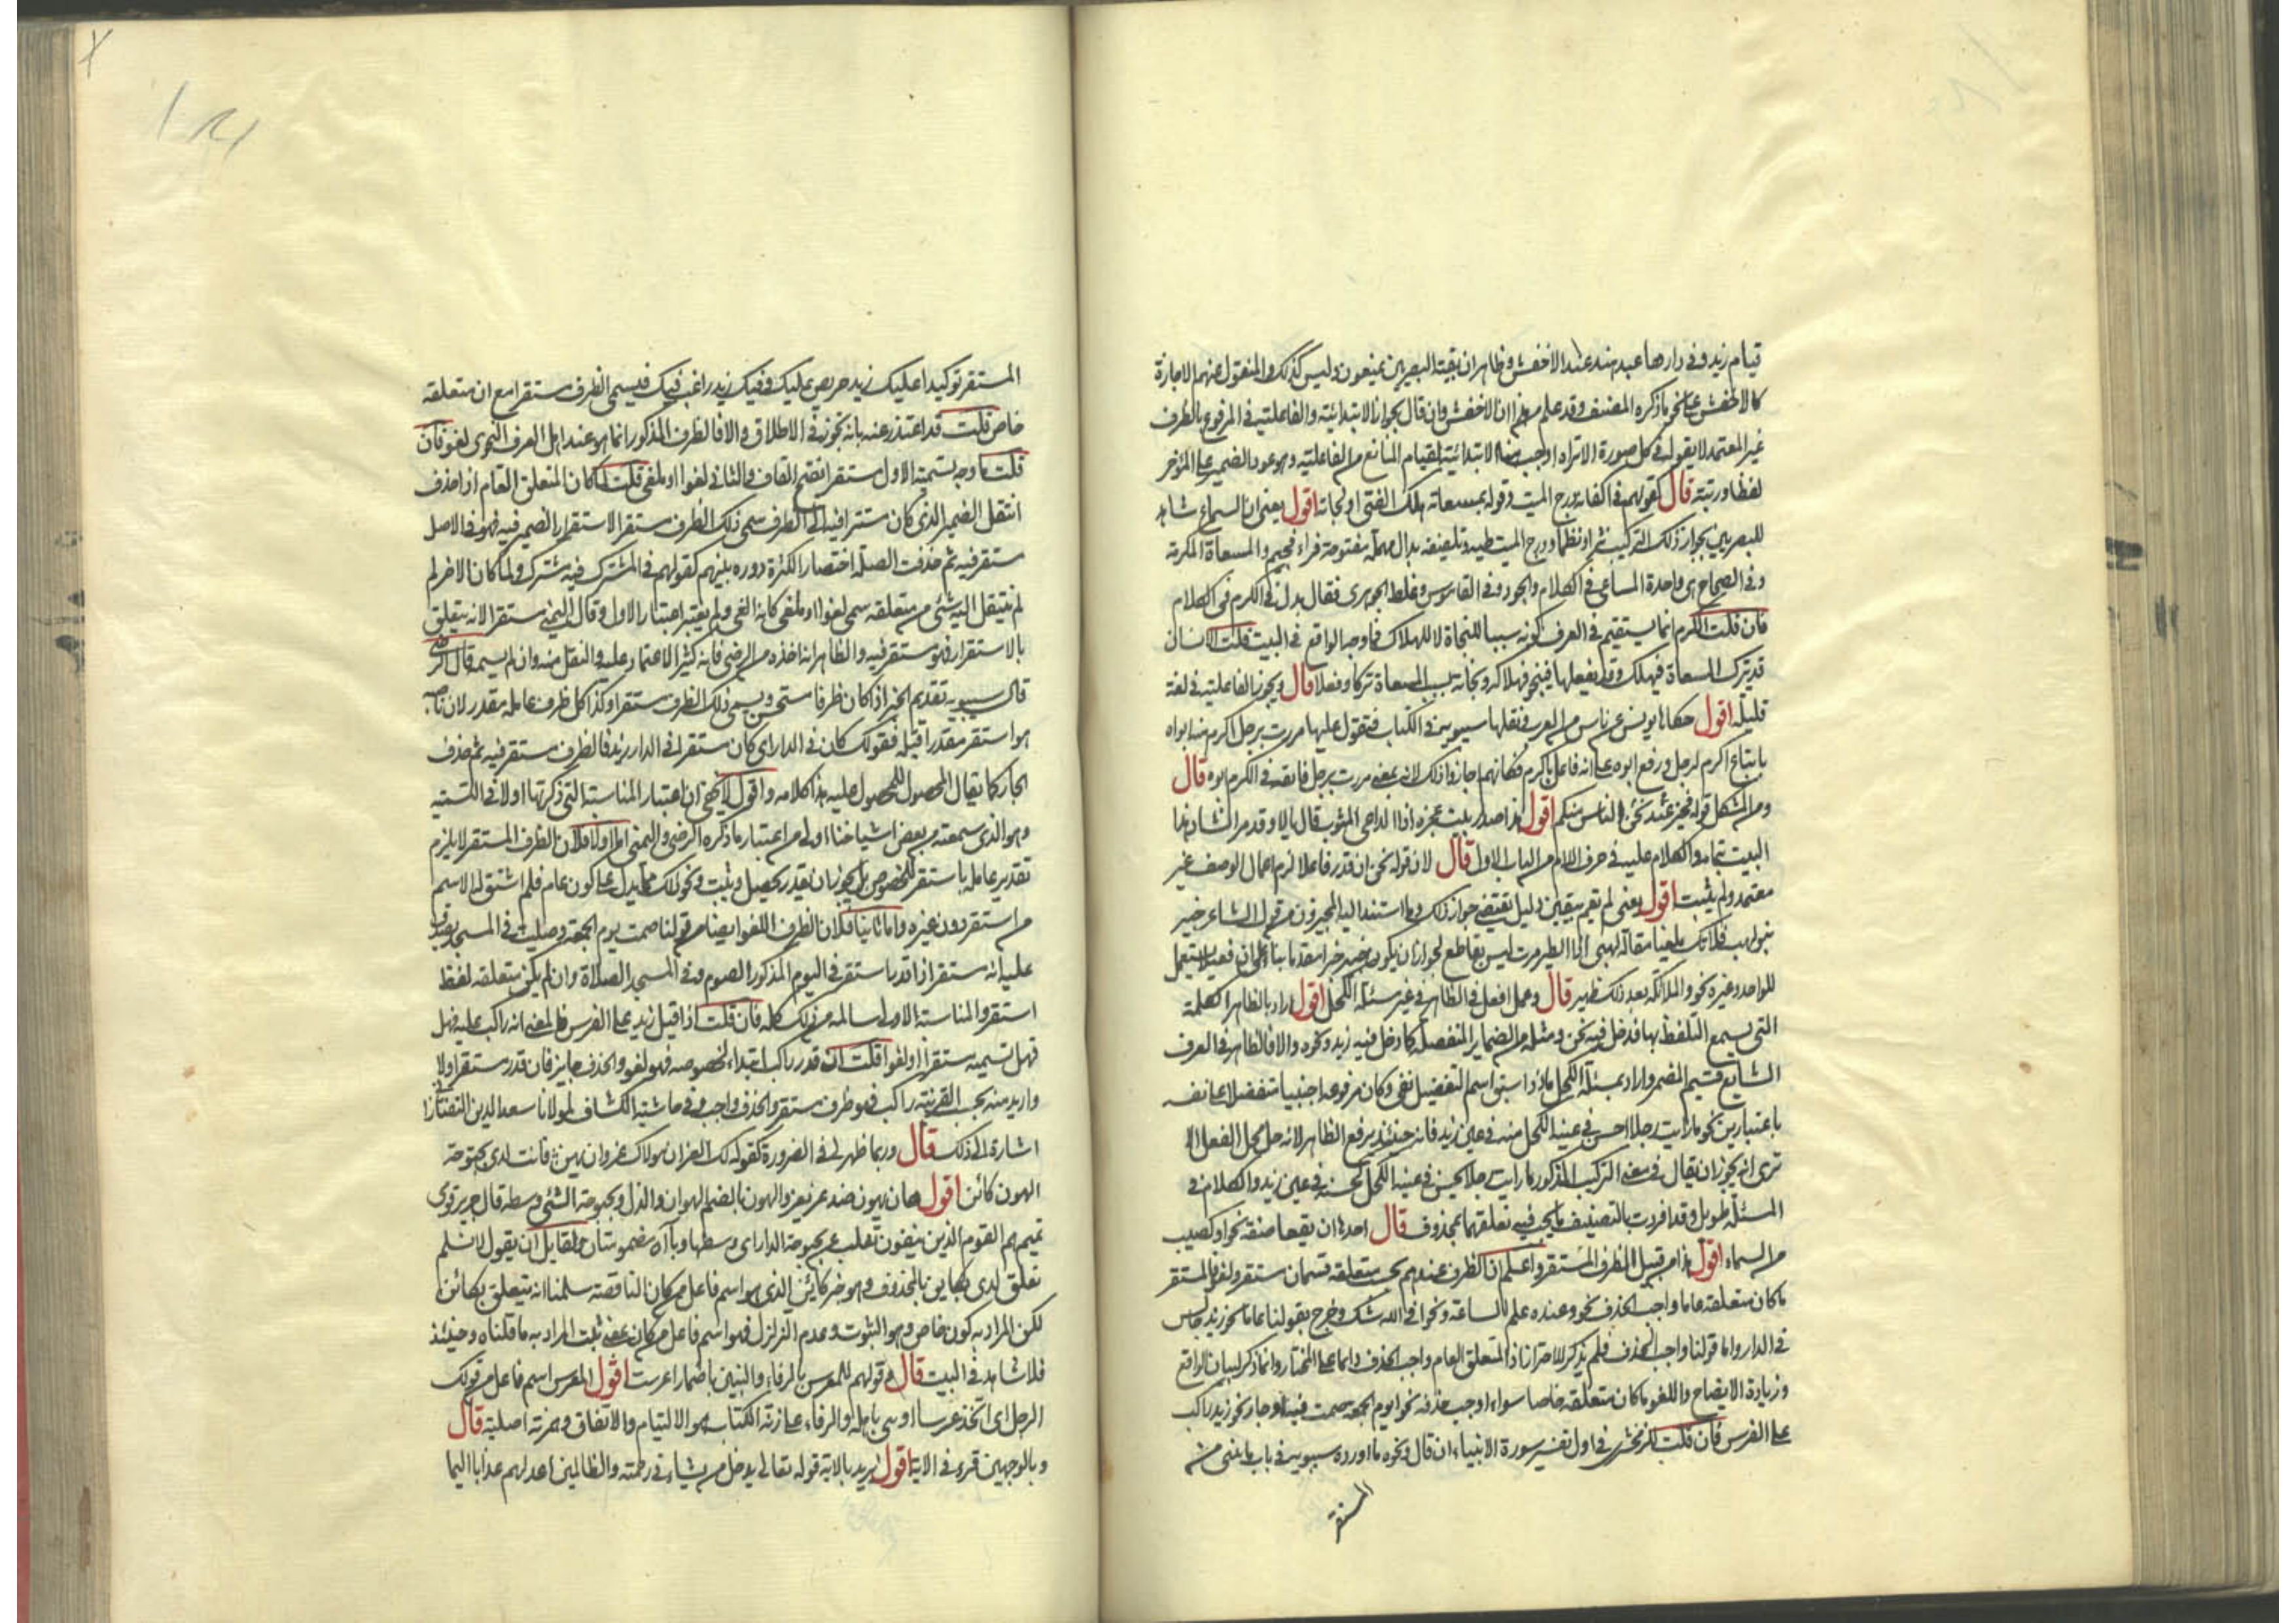 قيام زيد وفي دارها عبد هند عند الاخفش وظاهر ان بقية البصريين يمنعون وليس كذلك والمنقول عنهم الاجازة
كالاخفش على نحو ما ذكره المصنف وقد علم من هذا ان الاخفش وان قال بجواز الابتدائية والفاعلية في المرفوع بالظرف
غير المعتمد لا يقول في كل صورة الا تراه اوجب هنا الابتدائية لقيام المانع من الفاعلية وهو عود الضمير على المؤخر
لفظا ورتبة قال كقولهم في اكفانه درج الميت وقوله بمسعاته هلك الفتى او نجاته اقول يعني ان السماع شاهد
للبصريين بجواز ذلك التركيب نثرا ونظما ودرج الميت طيه وتلفيفه بدال مهملة مفتوحة فراء فجيم والمسعاة المكرمة
وفي الصحاح هي واحدة المساعي في الكلام والجود وفي القاموس وغلط الجوهري فقال بدل في الكرم في الكلام
فان قلت الكرم انما يستقيم في العرف كونه سببا للنجاة لا للهلاك فما وجه الواقع في البيت قلت الانسان
قد يترك المسعاة فيهلك وقد يفعلها فينجو فهلاكه ونجاته بسبب المسعاة تركا وفعلا قال ويجوز الفاعلية في لغة
قليلة اقول حكاها يونس عن ناس من العرب ونقلها سيبويه في الكتاب فتقول عليها مررت برجل اكرم منه ابواه
باتباع اكرم لرجل ورفع ابوه على انه فاعل باكرم فكانهم اجازوا ذلك لانه بمعنى مررت برجل فايقه في الكرم ابوه قال
ومن المشكل قوله فخير نحن عند الناس منكم اقول هذا صدر بيت عجزه اذا الداعي المثوب قال يالا وقد مر انشاد هذا
البيت بتمامه والكلام عليه في حرف اللام من الباب الاول قال لان قوله نحن ان قدر فاعلا لزم اعمال الوصف غير
معتمد ولم يثبت اقول يعني لم يقم بيقين دليل يقتضي جواز ذلك وما استند اليه المجيزون من قول الشاعر خبير
بنو لهب فلا تك ملغيا مقالة لهبي اذا الطير مرت ليس بقاطع لجواز ان يكون خبير خبرا مقدما بناء على ان فعيلا يستعمل
للواحد وغيره نحو والملائكة بعد ذلك ظهير قال وعمل افعل في الظاهر في غير مسئلة الكحل اقول اراد بالظاهر الكلمة
التي يسمع التلفظ بها فدخل فيه نحن ومثله من الضماير المنفصلة كما دخل فيه زيد ونحوه والا فالظاهر في العرف
الشايع قسيم المضمر واراد بمسئلة الكحل ما اذا سبق اسم التفضيل نفي وكان مرفوعه اجنبيا مفضلا على نفسه
باعتبارين نحو ما رايت رجلا احسن في عينه الكحل منه في عين زيد فانه حينئذ يرفع الظاهر لانه حل محل الفعل الا
ترى انه يجوز ان يقال في معنى التركيب المذكور ما رايت رجلا يحسن في عينه الكحل كحسنه في عين زيد والكلام في
المسئلة طويل وقد افردت بالتصنيف ما يجب فيه تعلقهما بمحذوف قال احدها ان يقعا صفة نحو او كصيب
من السماء اقول هذا من قبيل الظرف المستقر واعلم ان الظرف عندهم بحسب متعلقه قسمان مستقر ولغو فالمستقر
ما كان متعلقه عاما واجب الحذف نحو وعنده علم الساعة ونحو افي الله شك وخرج بقولنا عاما نحو زيد جالس
في الدار واما قولنا واجب الحذف فلم يذكر للاحتراز اذ المتعلق العام واجب الحذف دايما على المختار وانما ذكر لبيان الواقع
وزيادة الايضاح واللغو ما كان متعلقه خاصا سواء اوجب حذفه نحو يوم الجمعة صمت فيه او جاز نحو زيد راكب
على الفرس فان قلت للزمخشري في اول تفسير سورة الانبياء ان قال ونحوه ما اورده سيبويه في باب ما يثنى فيه
المستقر
المستقر توكيدا عليك زيد حريص عليك وفيك زيد راغب فيك فيسمى الظرف مستقرا مع ان متعلقه
خاص قلت قد اعتذر عنه بانه تجوز في الاطلاق والا فالظرف المذكور انما هو عند اهل العرف النحوي لغو فان
قلت ما وجه تسمية الاول مستقرا بفتح القاف والثاني لغوا او ملغى قلت لما كان المتعلق العام اذا حذف
انتقل الضمير الذي كان مستترا فيه الى الظرف سمي ذلك الظرف مستقرا لاستقرار الضمير فيه فهو في الاصل
مستقر فيه ثم حذفت الصلة اختصارا لكثرة دوره بينهم كقولهم في المشترك فيه مشترك ولما كان الاخر لم
لم ينتقل اليه شئ من متعلقه سمي لغوا او ملغى كانه الغي ولم يعتبر اعتبار الاول وقال اليمني مستقر لانه يتعلق
بالاستقرار فهو مستقر فيه والظاهر انه اخذه من الرضي فانه كثير الاعتماد عليه والنقل منه وان لم يسمه قال الرضي
قال سيبويه تقديم الخبر اذا كان ظرفا مستحسن ويسمى ذلك الظرف مستقرا وكذا كل ظرف عامله مقدر لان ناصبه
هو استقر مقدرا قبله فقولك كان في الدار اي كان مستقرا في الدار زيد فالظرف مستقر فيه ثم حذف
الجار كما يقال المحصول للمحصول عليه هذا كلامه واقول لا يخفى ان اعتبار المناسبة التي ذكرتها اولا في التسمية
وهو الذي سمعته من بعض اشياخنا اولى من اعتبار ما ذكره الرضي واليمني اما اولا فلان الظرف المستقر لا يلزم
تقدير عامله باستقر للخصوص بل يجوز ان يقدر بحصل وثبت ونحو ذلك مما يدل على كون عام فلم اشتق له الاسم
من استقر دون غيره واما ثانيا فلان الظرف اللغو ايضا من قولنا صمت يوم الجمعة وصليت في المسجد يصدق
عليه انه مستقر اذ قد استقر في اليوم المذكور الصوم وفي المسجد الصلاة وان لم يكن متعلقه لفظ
استقر والمناسبة الاولى سالمة من ذلك كله فان قلت اذا قيل زيد على الفرس فالمعنى انه راكب عليه فهل
فهل تسميه مستقرا او لغوا قلت ان قدر راكب ابتداء لخصوصه فهو لغو والحذف جايز فان قدر مستقر اولا
واريد منه بحسب القرينة راكب فهو ظرف مستقر والحذف واجب وفي حاشية الكشاف لمولانا سعد الدين التفتازاني
اشارة الى ذلك قال وربما ظهر في الضرورة كقوله لك العز ان مولاك عز وان يهن فانت لدى بحبوحة
الهون كائن اقول هان يهون ضد عز يعز والهون بالضم الهوان والذل وبحبوحة الشئ وسطه قال جرير قومي
تميم هم القوم الذين ينفون تغلب عن بحبوحة الدار اي وسطها وباآه مضمومتان ولقايل ان يقول لا نسلم
تعلق لدى بكاين بالمحذوف وهو خبر كائن الذي هو اسم فاعل من كان الناقصة سلمنا انه متعلق بكائن
لكن المراد به كون خاص وهو الثبوت وعدم التزلزل فهو اسم فاعل من كان بمعنى ثبت المراد به ما قلناه وحينئذ
فلا شاهد في البيت قال وقولهم للمعرس بالرفاء والبنين باضمار اعرست اقول المعرس اسم فاعل من قولك
الرجل اي اتخذ عرسا او بنى باهله والرفاء على زنة الكتاب هو الالتيام والاتفاق وهمزته اصلية قال
وبالوجهين قرئ في الاية اقول يريد بالاية قوله تعالى يدخل من يشاء في رحمته والظالمين اعد لهم عذابا اليما